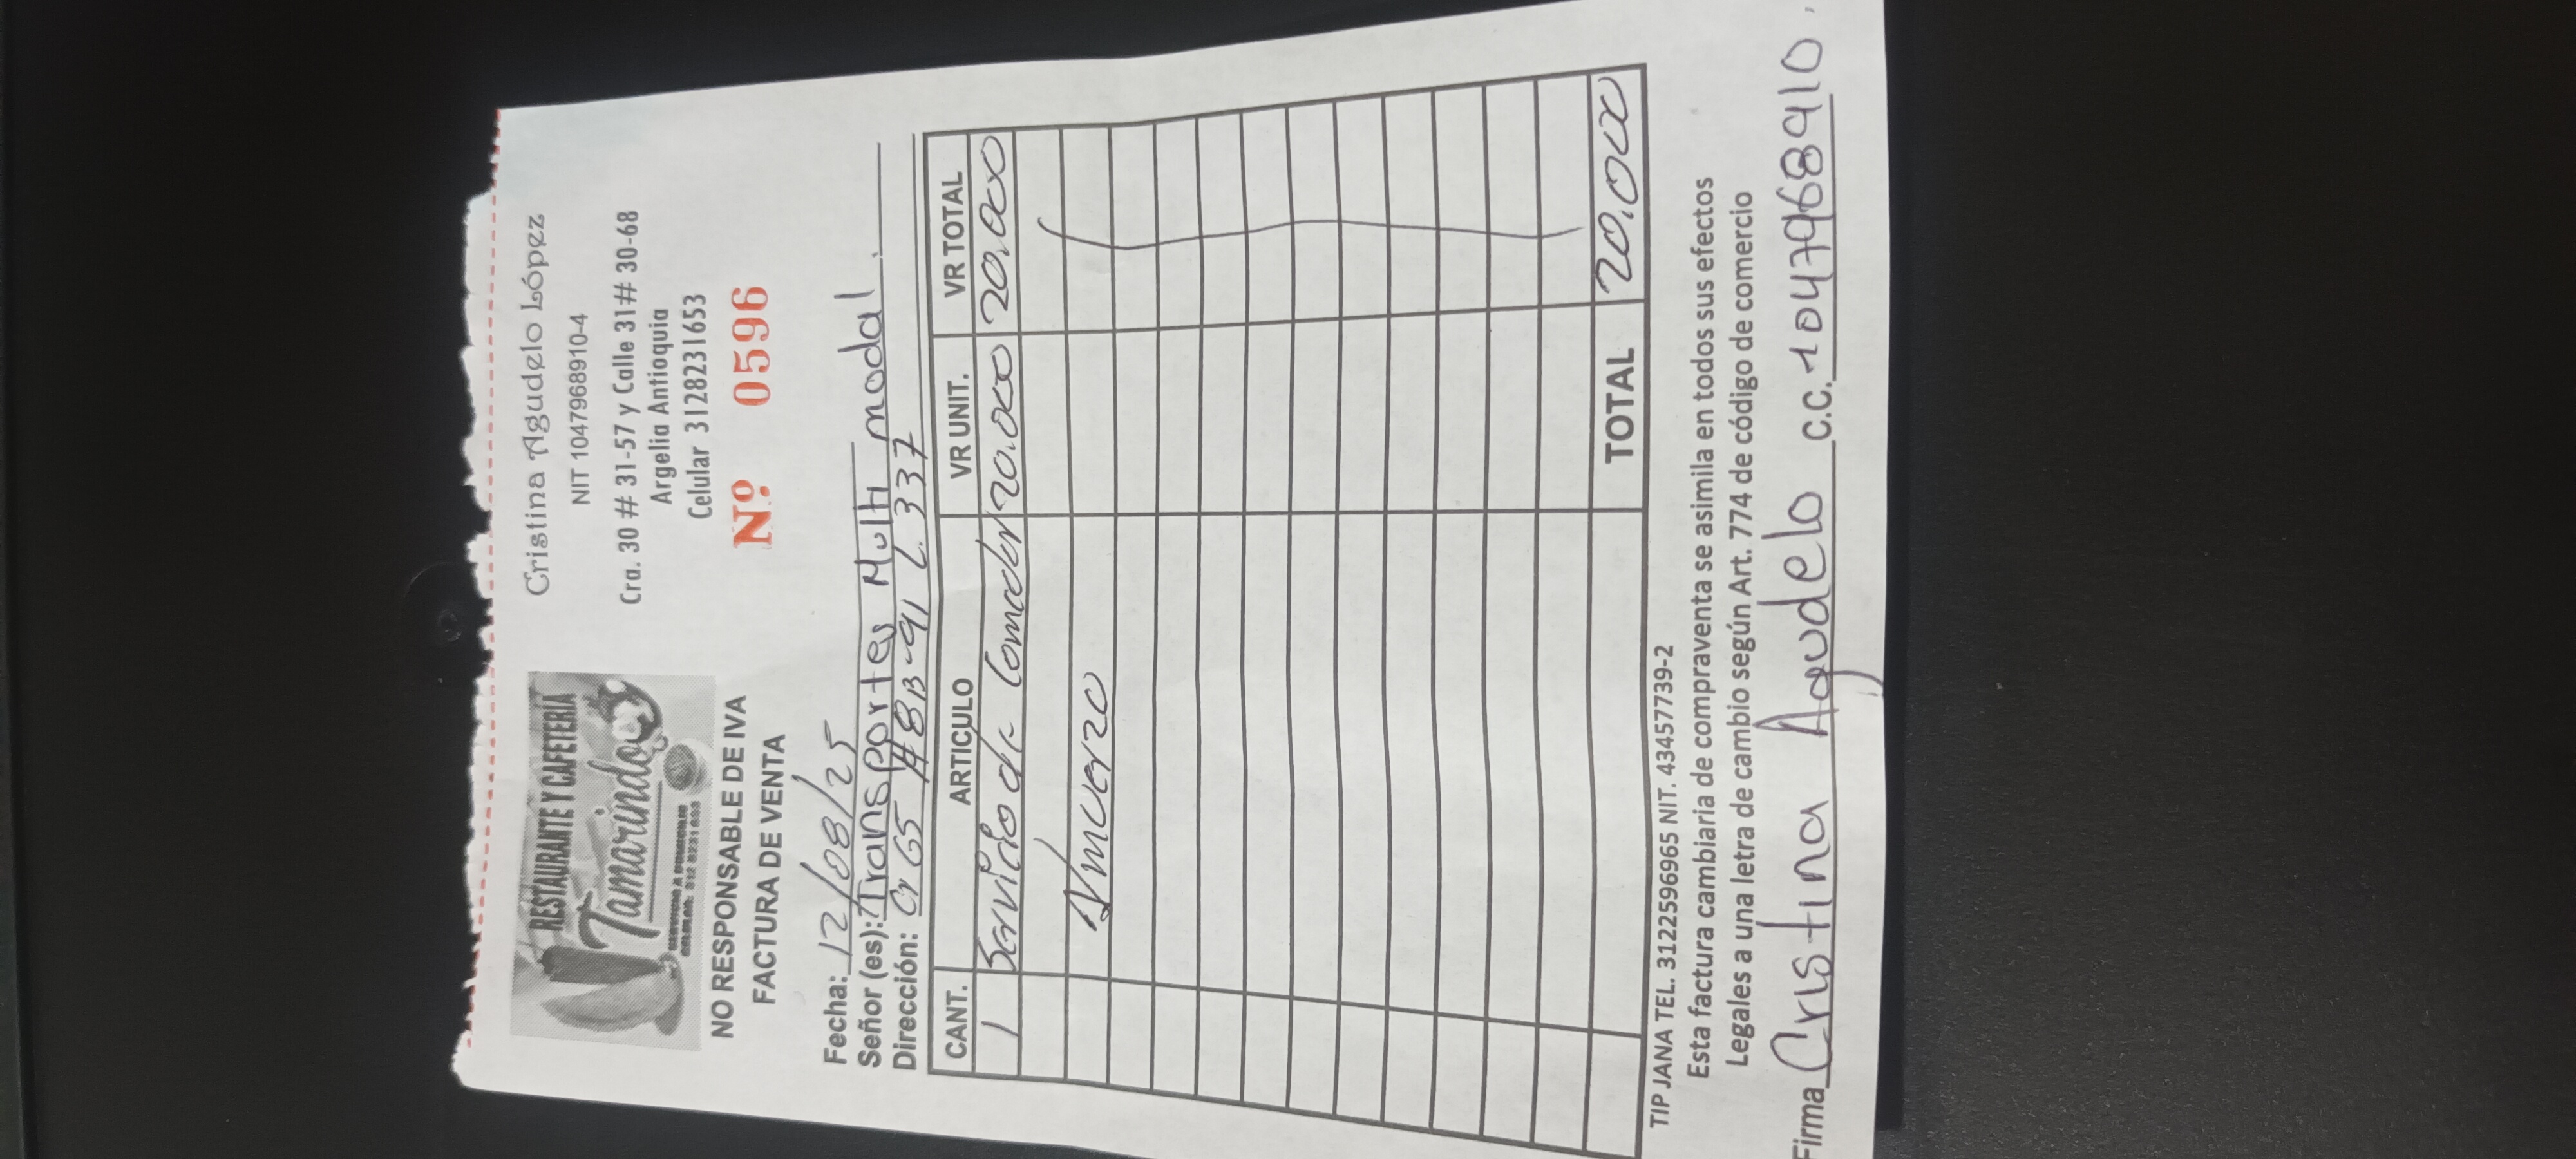 RESTAURANTE Y CAFETERIA
Tamarindo
SERVICIO A DOMICILIO
CELULAR: 312 8231653
Cristina Agudelo López
NIT 1047968910-4
Cra. 30 # 31-57 y Calle 31# 30-68
Argelia Antioquia
Celular 3128231653
NO RESPONSABLE DE IVA
FACTURA DE VENTA
Nº. 0596
Fecha: 12/08/25
Señor (es): Transportes Multi modal.
Dirección: Cr 65 #8B-91 L. 337
CANT. ARTICULO VR UNIT. VR TOTAL
1 Servicio de Comedor 20.000 20.000
Almuerzo
TOTAL 20.000
TIP JANA TEL. 3122596965 NIT. 43457739-2
Esta factura cambiaria de compraventa se asimila en todos sus efectos
Legales a una letra de cambio según Art. 774 de código de comercio
Firma Cristina Agudelo C.C. 1047968910.